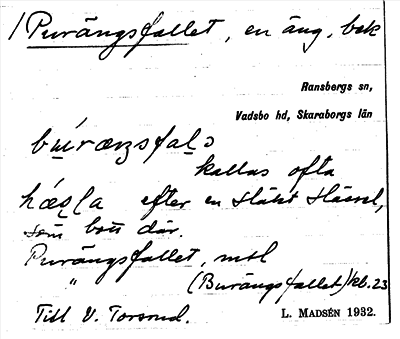 /Purängsfallet, en äng, bek
Ransbergs sn,
Vadsbo hd, Skaraborgs län
kallas ofta
efter en släkt Hässel,
som bott där.
Purängsfallet, mtl
" (Burängsfallet) kb. 23
Till V. Torsrud.
L. MADSÉN 1932.